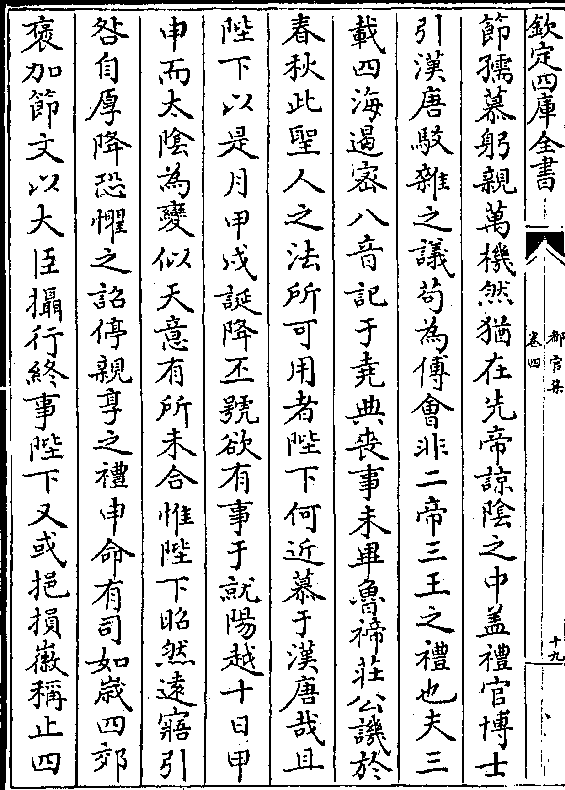 欽定四庫全書
都官集
卷四
十九
節孺慕躬親萬機然猶在先帝諒陰之中盖禮官博士
引漢唐駁雜之議苟為傅會非二帝三王之禮也夫三
載四海遏宻八音記于堯典喪事未畢魯禘莊公譏於
春秋此聖人之法所可用者陛下何近慕于漢唐哉且
陛下以是月甲戌誕降丕號欲有事于就陽越十日甲
申而太陰為變似天意有所未合惟陛下昭然逺寤引
咎自厚降恐懼之詔停親享之禮申命有司如歳四郊
褒加節文以大臣攝行終事陛下又或挹損徽稱止四